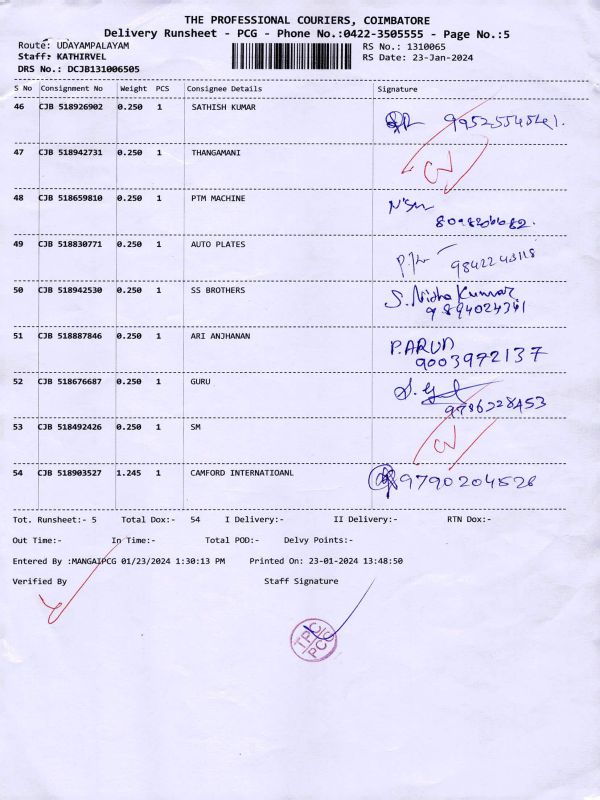 THE PROFESSIONAL COURIERS, COIMBATORE
Delivery Runsheet - PCG - Phone No.:0422-3505555 - Page No.:5
Route: UDAYAMPALAYAM RS No.: 1310065
Staff: KATHIRVEL RS Date: 23-Jan-2024
DRS No.: DCJB131006505
S No Consignment No Weight PCS Consignee Details Signature
46 CJB 518926902 0.250 1 SATHISH KUMAR
47 CJB 518942731 0.250 1 THANGAMANI
48 CJB 518659810 0.250 1 PTM MACHINE
49 CJB 518830771 0.250 1 AUTO PLATES
9842243118
50 CJB 518942530 0.250 1 SS BROTHERS S. Nisha Kumar
9894024341
51 CJB 518887846 0.250 1 ARI ANJHANAN P.ARUN
9003972137
52 CJB 518676687 0.250 1 GURU
9786228453
53 CJB 518492426 0.250 1 SM
54 CJB 518903527 1.245 1 CAMFORD INTERNATIOANL 9790204526
Tot. Runsheet:- 5 Total Dox:- 54 I Delivery:- II Delivery:- RTN Dox:-
Out Time:- In Time:- Total POD:- Delvy Points:-
Entered By :MANGAIPCG 01/23/2024 1:30:13 PM Printed On: 23-01-2024 13:48:50
Verified By Staff Signature
TPC
PCG